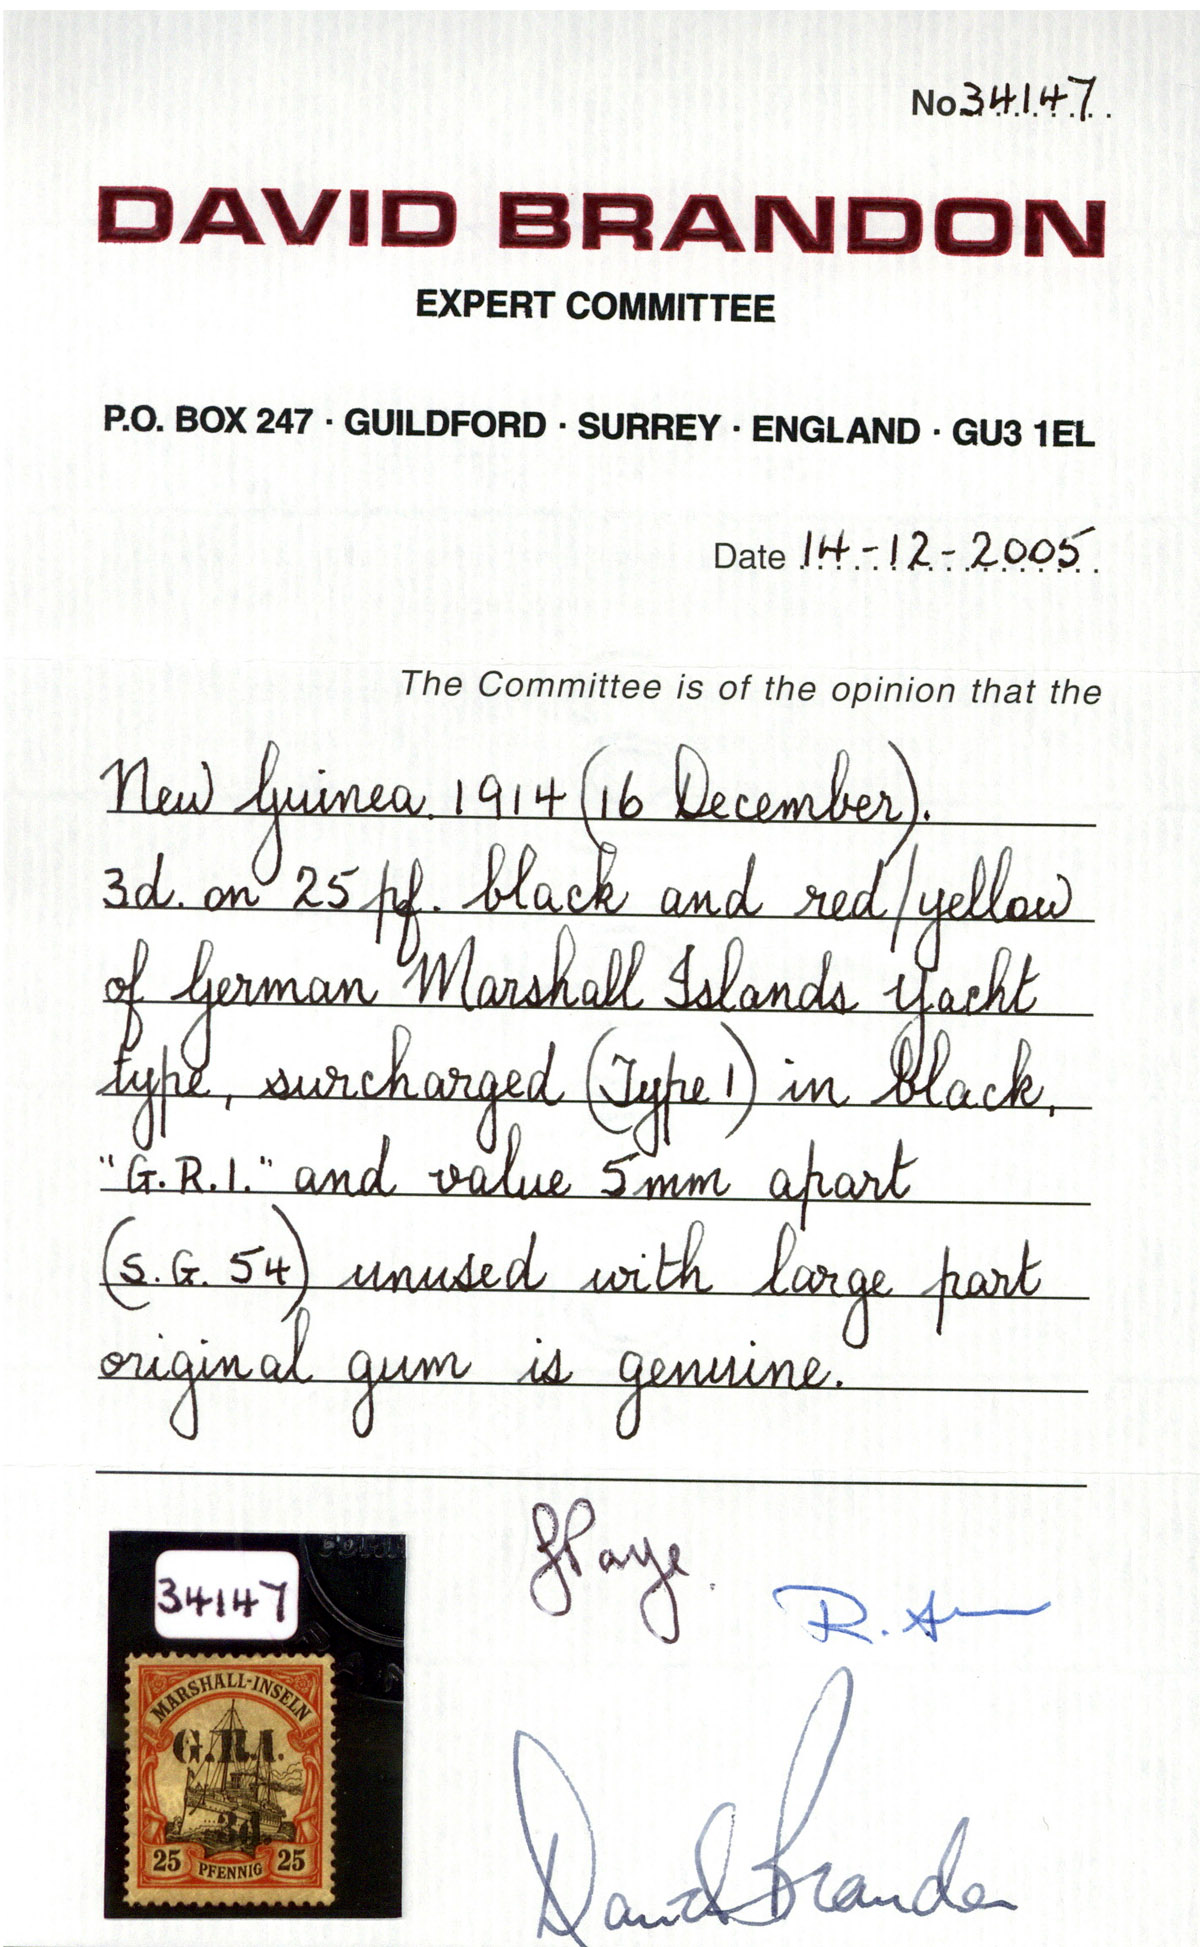 No 34147
DAVID BRANDON
EXPERT COMMITTEE
P.O. BOX 247 · GUILDFORD · SURREY · ENGLAND · GU3 1EL
Date 14-12-2005
The Committee is of the opinion that the
New Guinea. 1914 (16 December).
3d. on 25 pf. black and red/yellow
of German Marshall Islands Yacht
type, surcharged (Type 1) in black,
"G.R.I." and value 5mm apart
(S.G. 54) unused with large part
original gum is genuine.
R.
David Brandon
34147
MARSHALL-INSELN
G.R.I.
3d.
25 PFENNIG 25